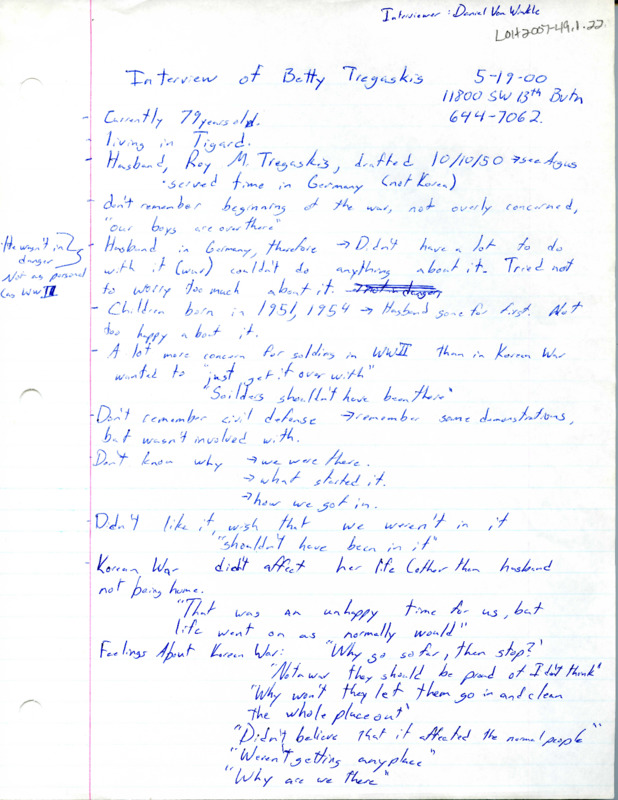 Interviewer: Daniel Van Winkle
LOH2007-49.1.22
Interview of Betty Tregaskis 5-19-00
11800 SW 13th Bvtn
644-7062.
- Currently 79 years old.
- living in Tigard.
- Husband, Roy M. Tregaskis, drafted 10/10/50 → see Argus
· served time in Germany (not Korea)
- don't remember beginning of the war, not overly concerned,
"our boys are over there"
- Husband in Germany, therefore → Didn't have a lot to do
with it (war) couldn't do anything about it. Tried not
to worry too much about it. → not in danger
He wasn't in
danger
Not as personal
(as WWII
- Children born in 1951, 1954 → Husband gone for first. Not
too happy about it.
- A lot more concern for soldiers in WWII than in Korean War
wanted to "just get it over with"
"Soilders shouldn't have been there"
- Don't remember civil defense → remember some demonstrations,
but wasn't involved with.
- Don't know why → we were there.
→ what started it.
→ how we got in.
- Didn't like it, wish that we weren't in it
"shouldn't have been in it"
- Korean War didn't affect her life (other than husband
not being home.
"That was an unhappy time for us, but
life went on as normally would"
Feelings About Korean War: "Why go so far, then stop?"
"Not a war they should be proud of I don't think"
"Why won't they let them go in and clean
the whole place out"
"Didn't believe that it affected the normal people"
"Weren't getting anyplace"
"Why are we there"